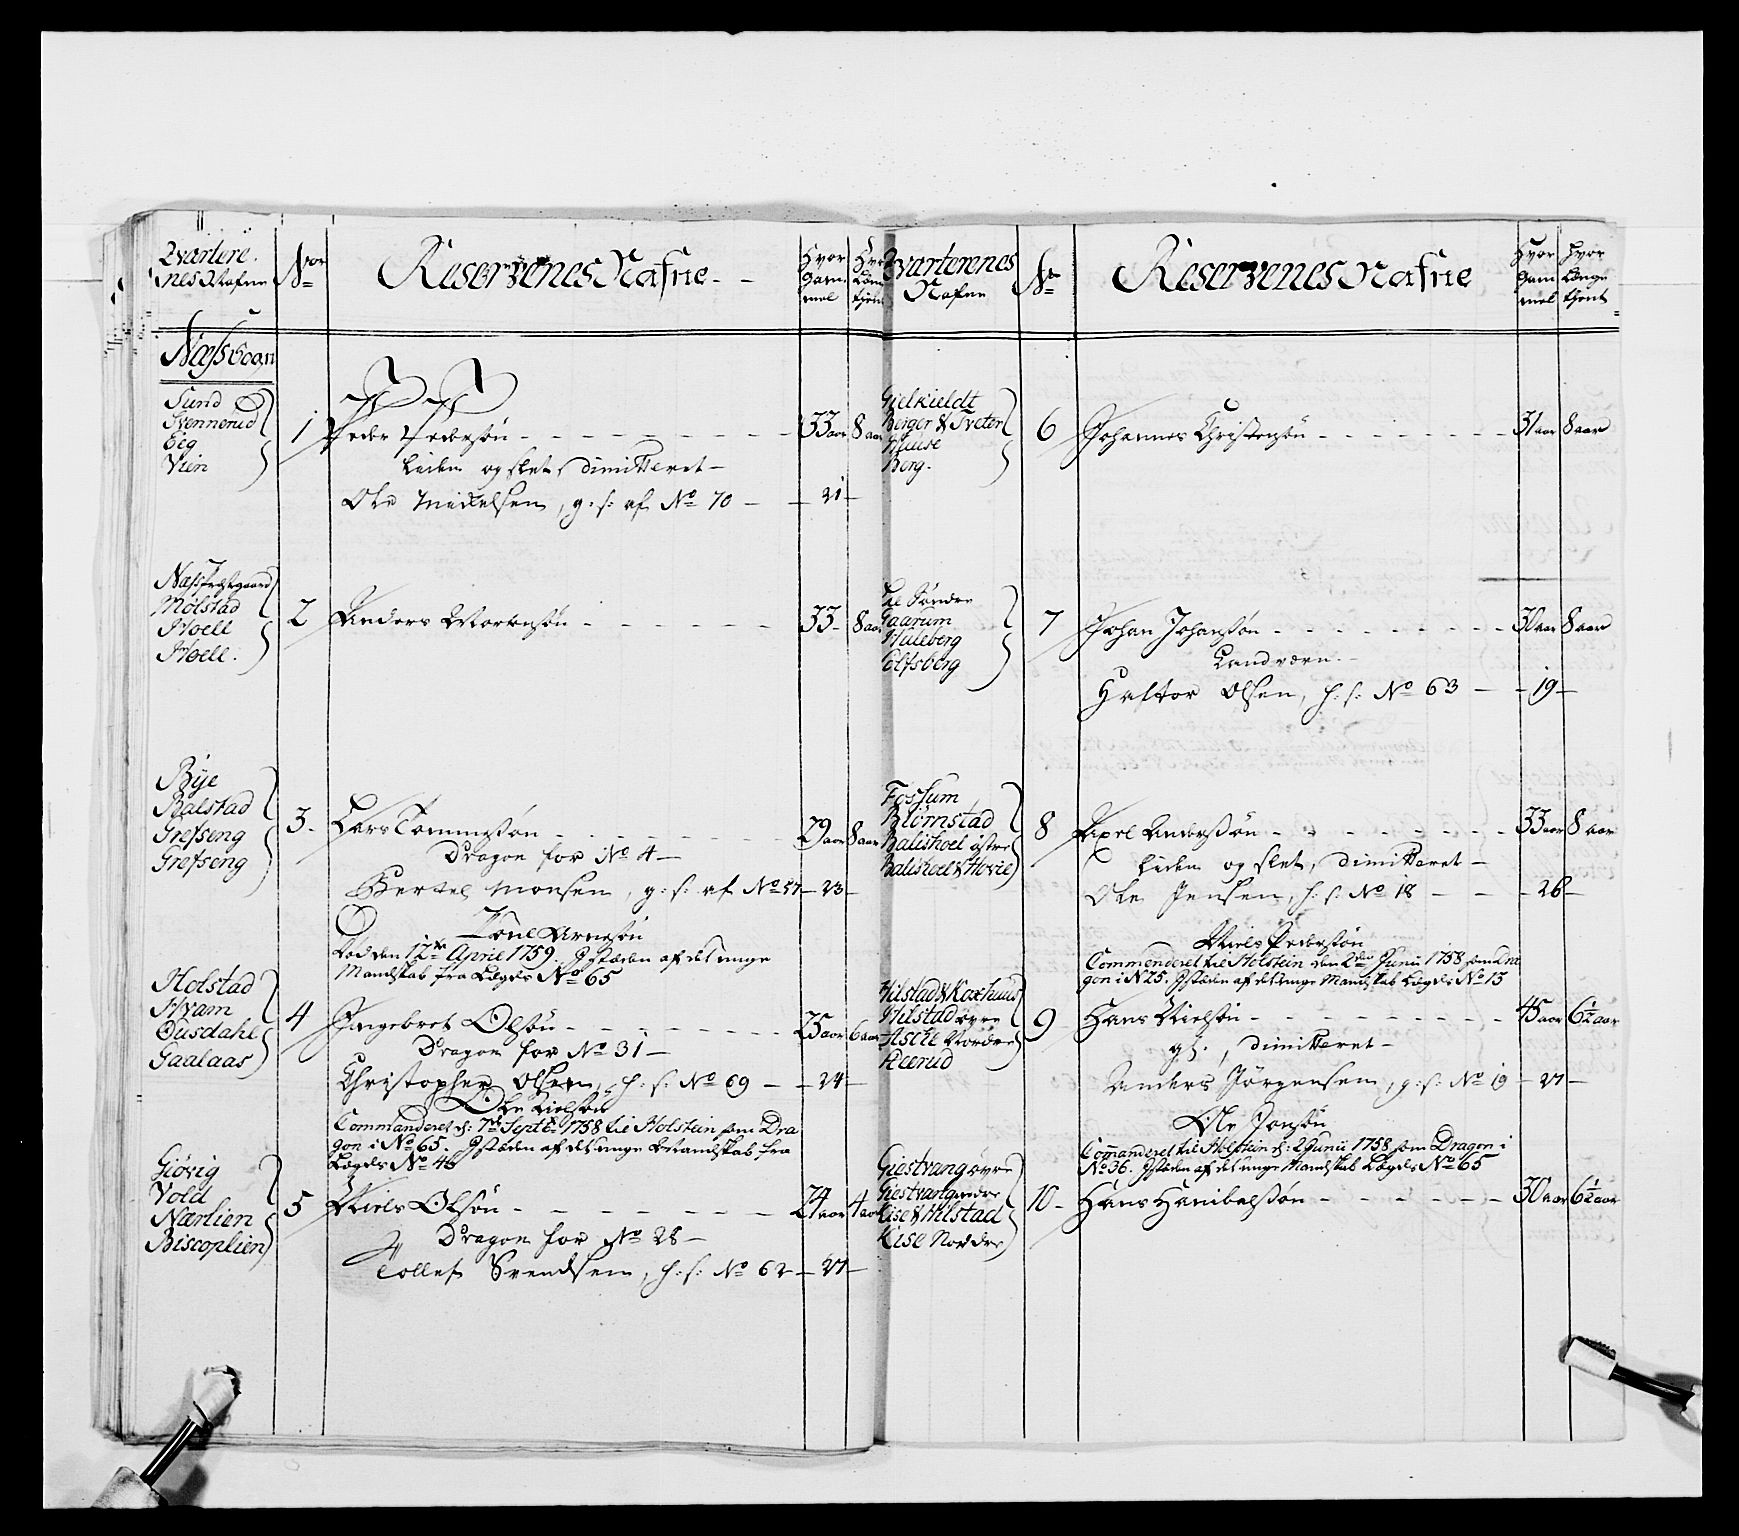 Qvartere-
nes Nafne
No
Reservenes Nafne
Hvor
Gam-
mel
Hvor
Længe
tjent
Næss Sogn
Sund
Svennerud
Eeg
Vien
1
Peder Pedersøn
33 aar
8 aar
Liden og slet, dimitteret
Ole Mickelsen, g: s: af No 70
21
Næss Præstgaard
Molstad
Hoell
Hoell
2
Anders Mortensøn
33
8 aar
Bye
Balstad
Grefseng
Grefseng
3
Lars Tommesøn
29 aar
8 aar
Dragon for No 4
Bertel Monsen, g: s: af No 57
23
Arnesøn
død den 12te April 1759. Istæden af det unge
Mandskab fra Lægds No 65
Holstad
Hvam
Dusdahl
Gaalaas
4
Ingebret Olsøn
25 aar
6 aar
Dragon for No 31
Christopher Olsen, h: s: No 69
24
Ole Nielsøn
Commanderet d: 7de Septb: 1758 til Holstein som Dra
gon i No 65. Istæden af det unge Mandskab fra
Lægds No 46
Giøvig
Vold
Nærlien
Biscoplien
5
Niels Olsøn
24 aar
4 aar
Dragon for No 28
Tollef Svendsen, h: s: No 62
27
Qvarterenes
Nafne
No
Reservenes Nafne
Hvor
Gam
mel
Hvor
Længe
tjent
Gielkieldt
Berger & Tveter
Berg.
6
Johannes Christensøn
31 aar
8 aar
Søndre
Gaarum
Huleberg
Colfsberg
7
Johan Johansøn
30 aar
8 aar
Landværn
Halfvor Olsen, h: s: No 63
19
Fossum
Blomstad
Balishoel østre
Balishoel & Hovie
8
Axel Andersøn
33 aar
8 aar
Liden og slet, dimitteret
Ole Jensen, h: s: No 18
26
Niels Pedersøn
Commenderet til Holstein den 2den Junii 1758 som Dra
gon i No 25. Istæden af det unge Mandskab Lægds No 13
Hilstad & Koxhuus
Hilstad øvre
Aske Nordre
Aclerud
9
Hans Nielsøn
45 aar
6½ aar
gl., dimitteret
Anders Jørgensen, g: s: No 19
27
Ole Jonsøn
Commanderet til Holstein d: 2 Junii 1758 som Dragon i
No 36. Istæden af det unge Mandskab Lægds No 65
Giestvang øvre
Giestvang nedre
Kise & Hilstad
Kise Nordre
10
Hans Hanibalsøn
30 aar
6½ aar